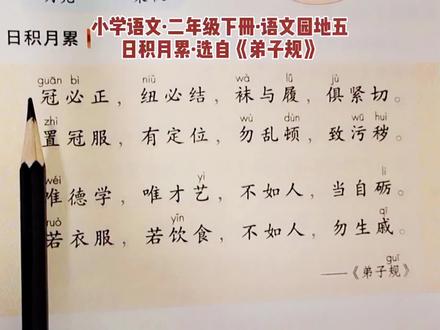 小学语文·二年级下册·语文园地五
日积月累·选自《弟子规》
日积月累
guān bì niǔ lǚ jù
冠必正，纽必结，袜与履，俱紧切。
zhì wù dùn wū huì
置冠服，有定位，勿乱顿，致污秽。
wéi yì
唯德学，唯才艺，不如人，当自砺。
ruò yǐn qī
若衣服，若饮食，不如人，勿生戚。
guī
——《弟子规》